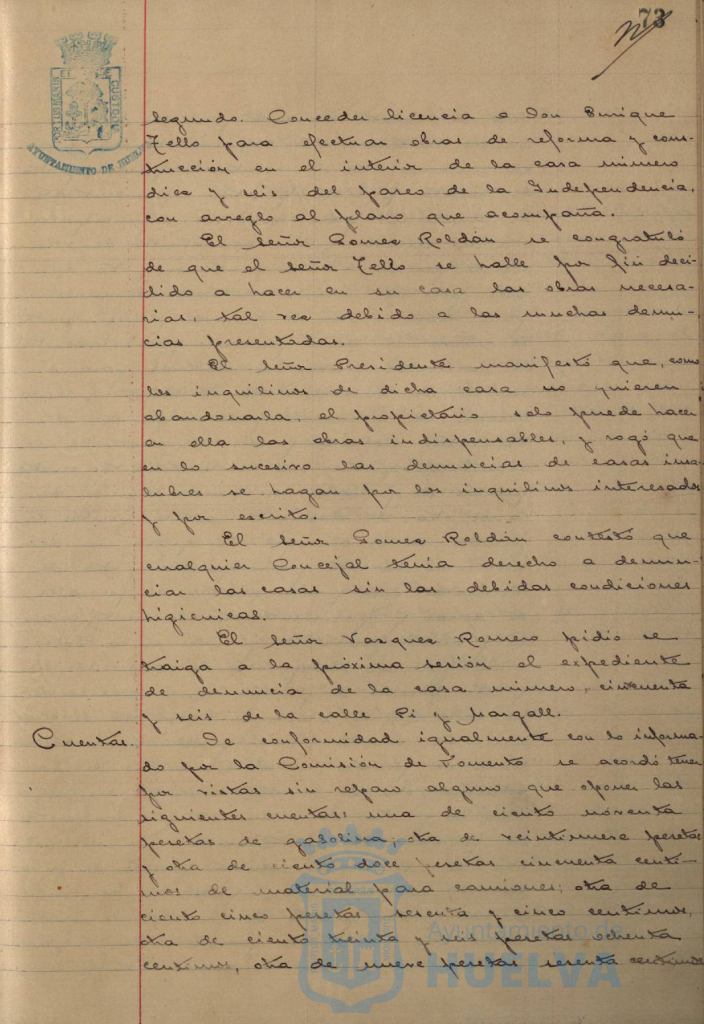 73
PORTUS MARIS
CUSTODIA
AYUNTAMIENTO DE HUELVA
segundo. Conceder licencia a Don Enrique
Tello para efectuar obras de reforma y cons-
trucción en el interior de la casa número
diez y seis del paseo de la Independencia,
con arreglo al plano que acompaña.
El señor Gomez Roldán se congratuló
de que el señor Tello se halle por fin deci-
dido a hacer en su casa las obras necesa-
rias, tal vez debido a las muchas denun-
cias presentadas.
El señor Presidente manifestó que, como
los inquilinos de dicha casa no quieren
abandonarla, el propietario solo puede hacer
en ella las obras indispensables, y rogó que
en lo sucesivo las denuncias de casas insa-
lubres se hagan por los inquilinos interesados
y por escrito.
El señor Gomez Roldán contestó que
cualquier Concejal tenía derecho a denun-
ciar las casas sin las debidas condiciones
higienicas.
El señor Vazquez Romero pidió se
traiga a la próxima sesión el expediente
de denuncia de la casa número, cincuenta
y seis de la calle Pi y Margall.
Cuentas. De conformidad igualmente con lo informa-
do por la Comisión de Fomento se acordó tener
por vistas sin reparo alguno que oponer las
siguientes cuentas: una de ciento noventa
pesetas de gasolina; otra de veintinueve pesetas
y otra de ciento doce pesetas cincuenta centi-
mos de material para camiones; otra de
ciento cinco pesetas sesenta y cinco centimos,
otra de ciento treinta y seis pesetas ochenta
centimos, otra de nueve pesetas sesenta centimos
Ayuntamiento de
HUELVA